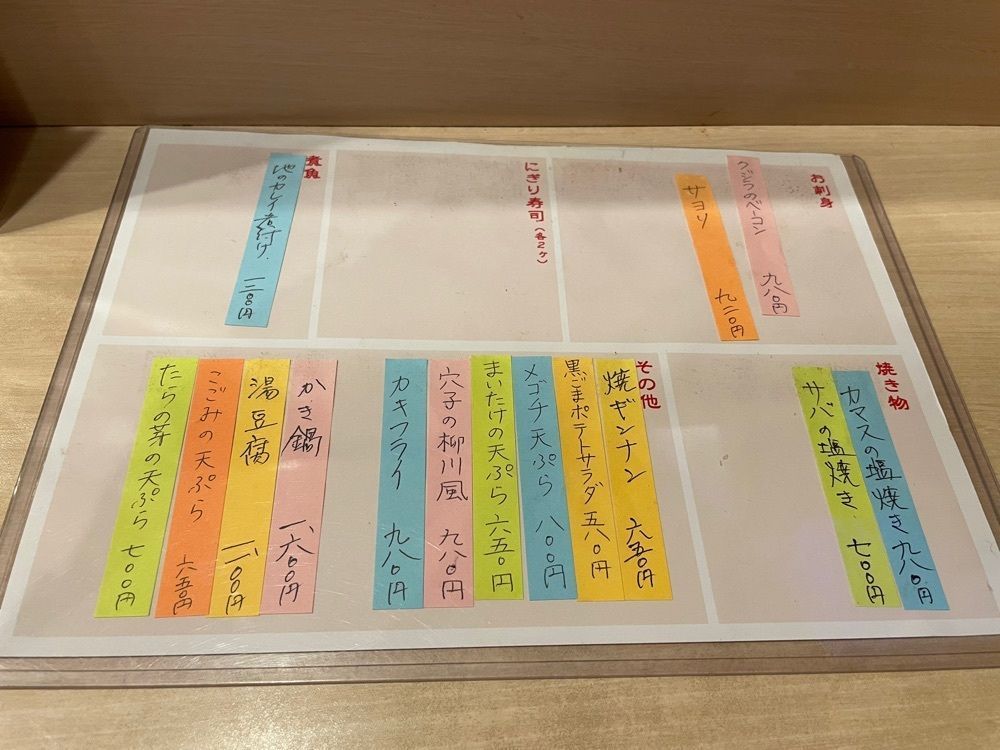 お刺身
クジラのベーコン 九八〇円
サヨリ 九二〇円
にぎり寿司(各2ヶ)
煮魚
地のカレイ煮付け
焼き物
カマスの塩焼き 九八〇円
サバの塩焼き 七〇〇円
その他
焼ギンナン 六五〇円
黒ごまポテトサラダ 五八〇円
メゴチ天ぷら 八〇〇円
まいたけの天ぷら 六五〇円
穴子の柳川風 九八〇円
カキフライ 九八〇円
かき鍋 一、六〇〇円
湯豆腐
こごみの天ぷら 六五〇円
たらの芽の天ぷら 七〇〇円